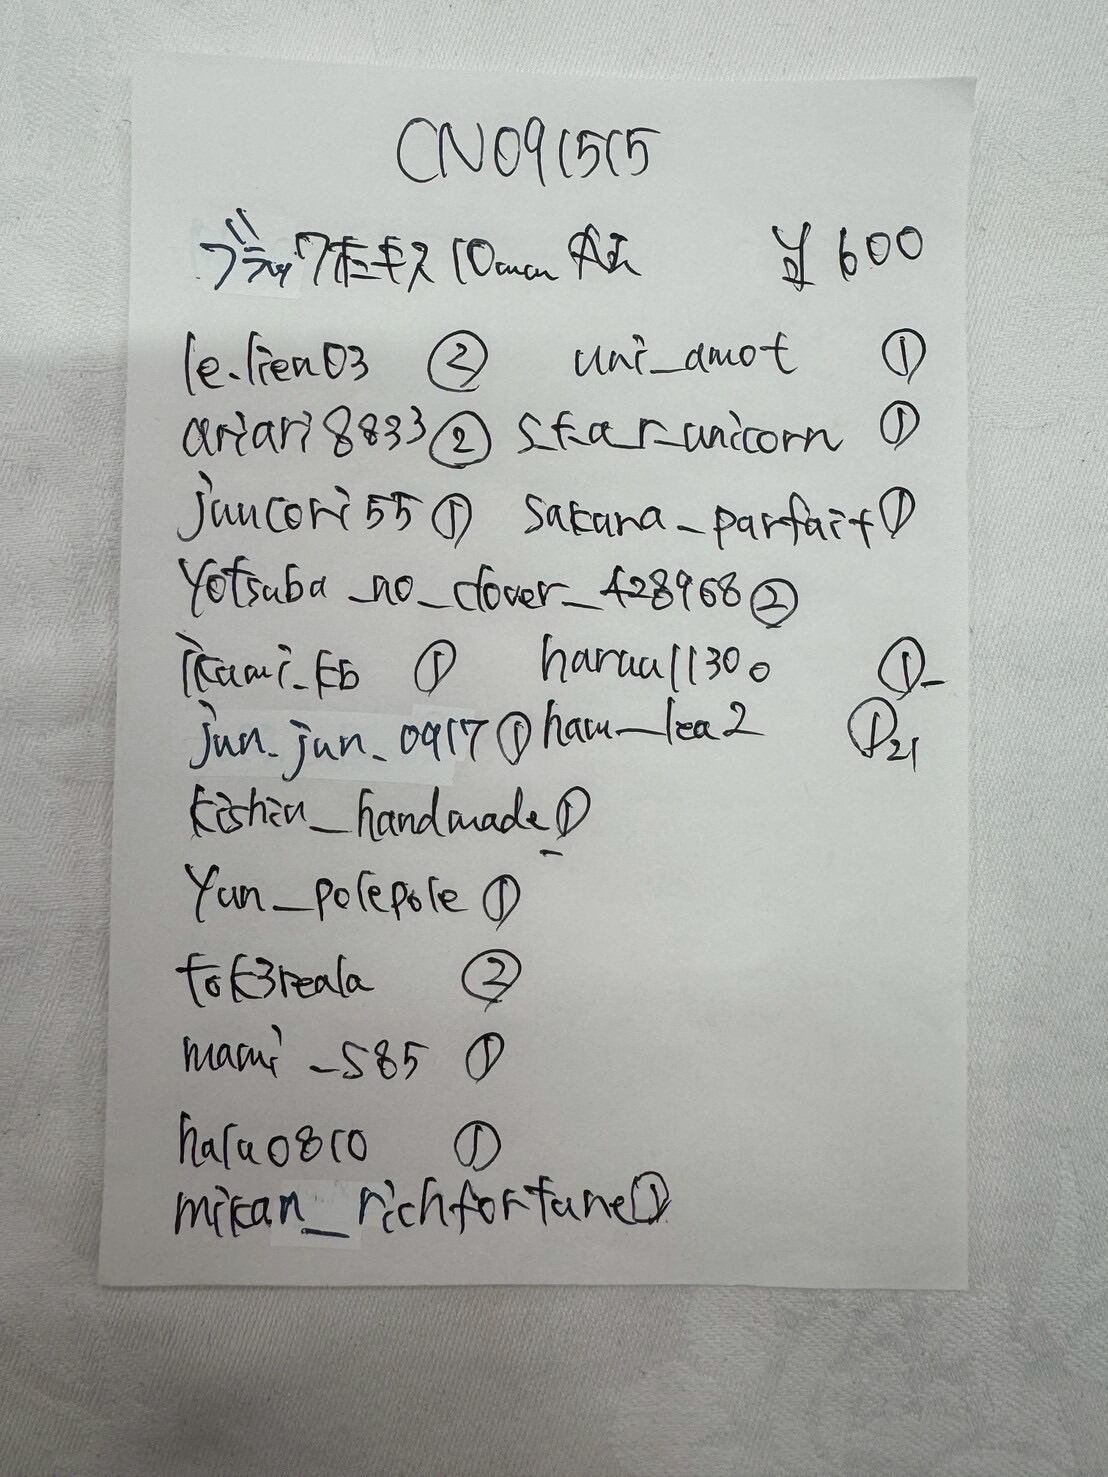 CN091515
ブラックホーキス 10mm AA ¥600
le.lien03 ② uni_amot ①
ariari8833 ② star_unicorn ①
juncori55 ① sakana_parfait ①
Yotsuba_no_clover_428968 ②
ikumi_kb ① haruu1130 ①
jun_jun_0917 ① haru_lea2 ① 21
kishin_handmade ①
Yun_polepole ①
tok3reala ②
mami_585 ①
halu0810 ①
mikan_richfortune ①